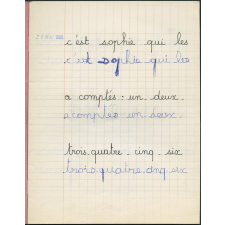 c'est sophie qui les
c'est Sophie qui les
a comptés. un. deux.
a comptés un deux.
trois. quatre. cinq. six
trois. quatre. cinq. six